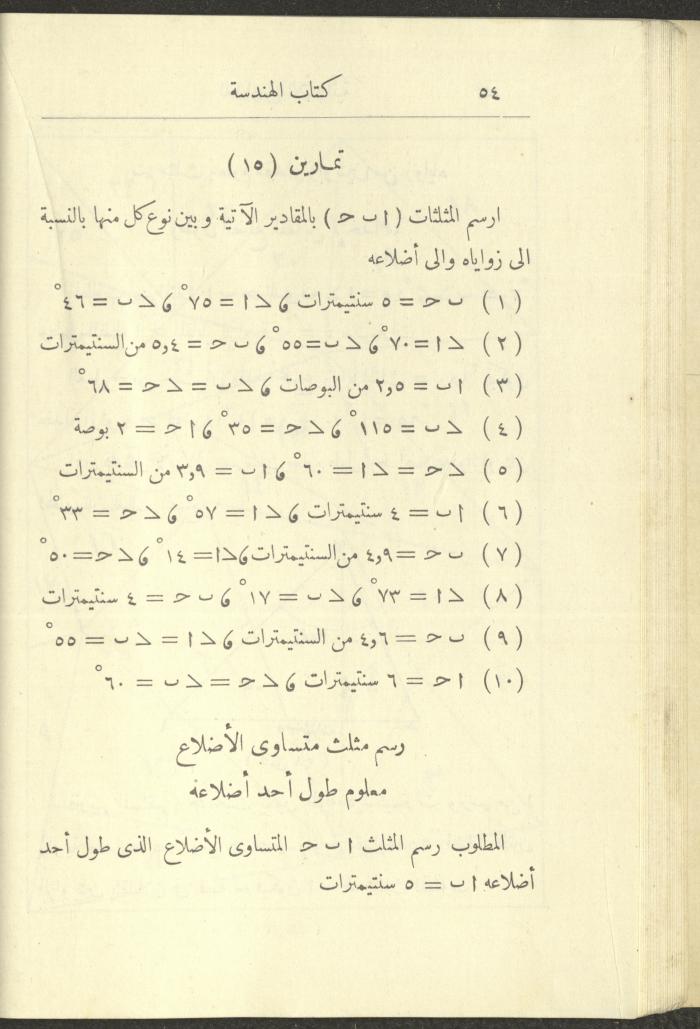 ٥٤
كتاب الهندسة
تمارين (١٥)
ارسم المثلثات (ا ب ح) بالمقادير الآتية وبين نوع كل منها بالنسبة
الى زواياه والى أضلاعه
(١) ب ح = ٥ سنتيمترات ، > ا = ٧٥° ، > ب = ٤٦°
(٢) > ا = ٧٠° ، > ب = ٥٥° ، ب ح = ٥,٤ من السنتيمترات
(٣) ا ب = ٢,٥ من البوصات ، > ب = > ح = ٦٨°
(٤) > ب = ١١٥° ، > ح = ٣٥° ، ا ح = ٢ بوصة
(٥) > ح = > ا = ٦٠° ، ا ب = ٣,٩ من السنتيمترات
(٦) ا ب = ٤ سنتيمترات ، > ا = ٥٧° ، > ح = ٣٣°
(٧) ب ح = ٤,٩ من السنتيمترات ، > ا = ١٤° ، > ح = ٥٠°
(٨) > ا = ٧٣° ، > ب = ١٧° ، ب ح = ٤ سنتيمترات
(٩) ب ح = ٤,٦ من السنتيمترات ، > ا = > ب = ٥٥°
(١٠) ا ح = ٦ سنتيمترات ، > ح = > ب = ٦٠°
رسم مثلث متساوى الأضلاع
معلوم طول أحد أضلاعه
المطلوب رسم المثلث ا ب ح المتساوى الأضلاع الذى طول أحد
أضلاعه ا ب = ٥ سنتيمترات